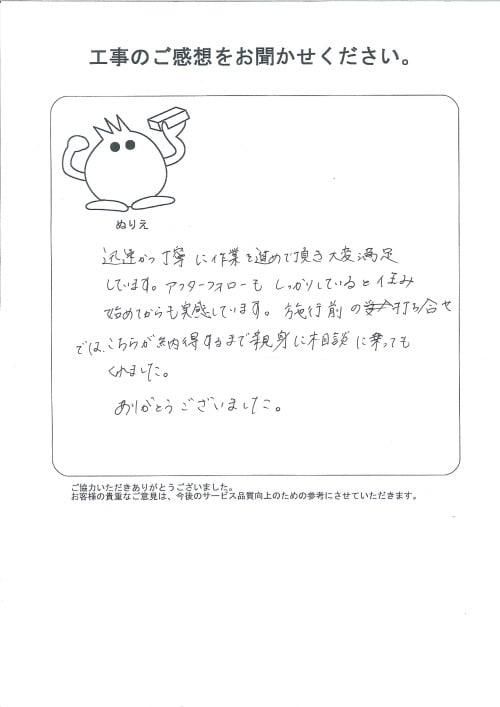 工事のご感想をお聞かせください。
ぬりえ
迅速かつ丁寧に作業を進めて頂き大変満足
しています。アフターフォローもしっかりしていると住み
始めてからも実感しています。施行前の打ち合せ
では、こちらが納得するまで親身に相談に乗っても
くれました。
ありがとうございました。
ご協力いただきありがとうございました。
お客様の貴重なご意見は、今後のサービス品質向上のための参考にさせていただきます。